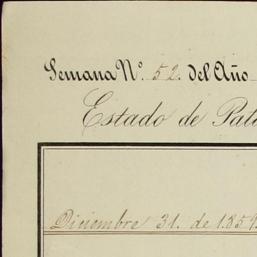 Semana Nº. 52. del Año
Estado de
Diciembre 31. de 1859.